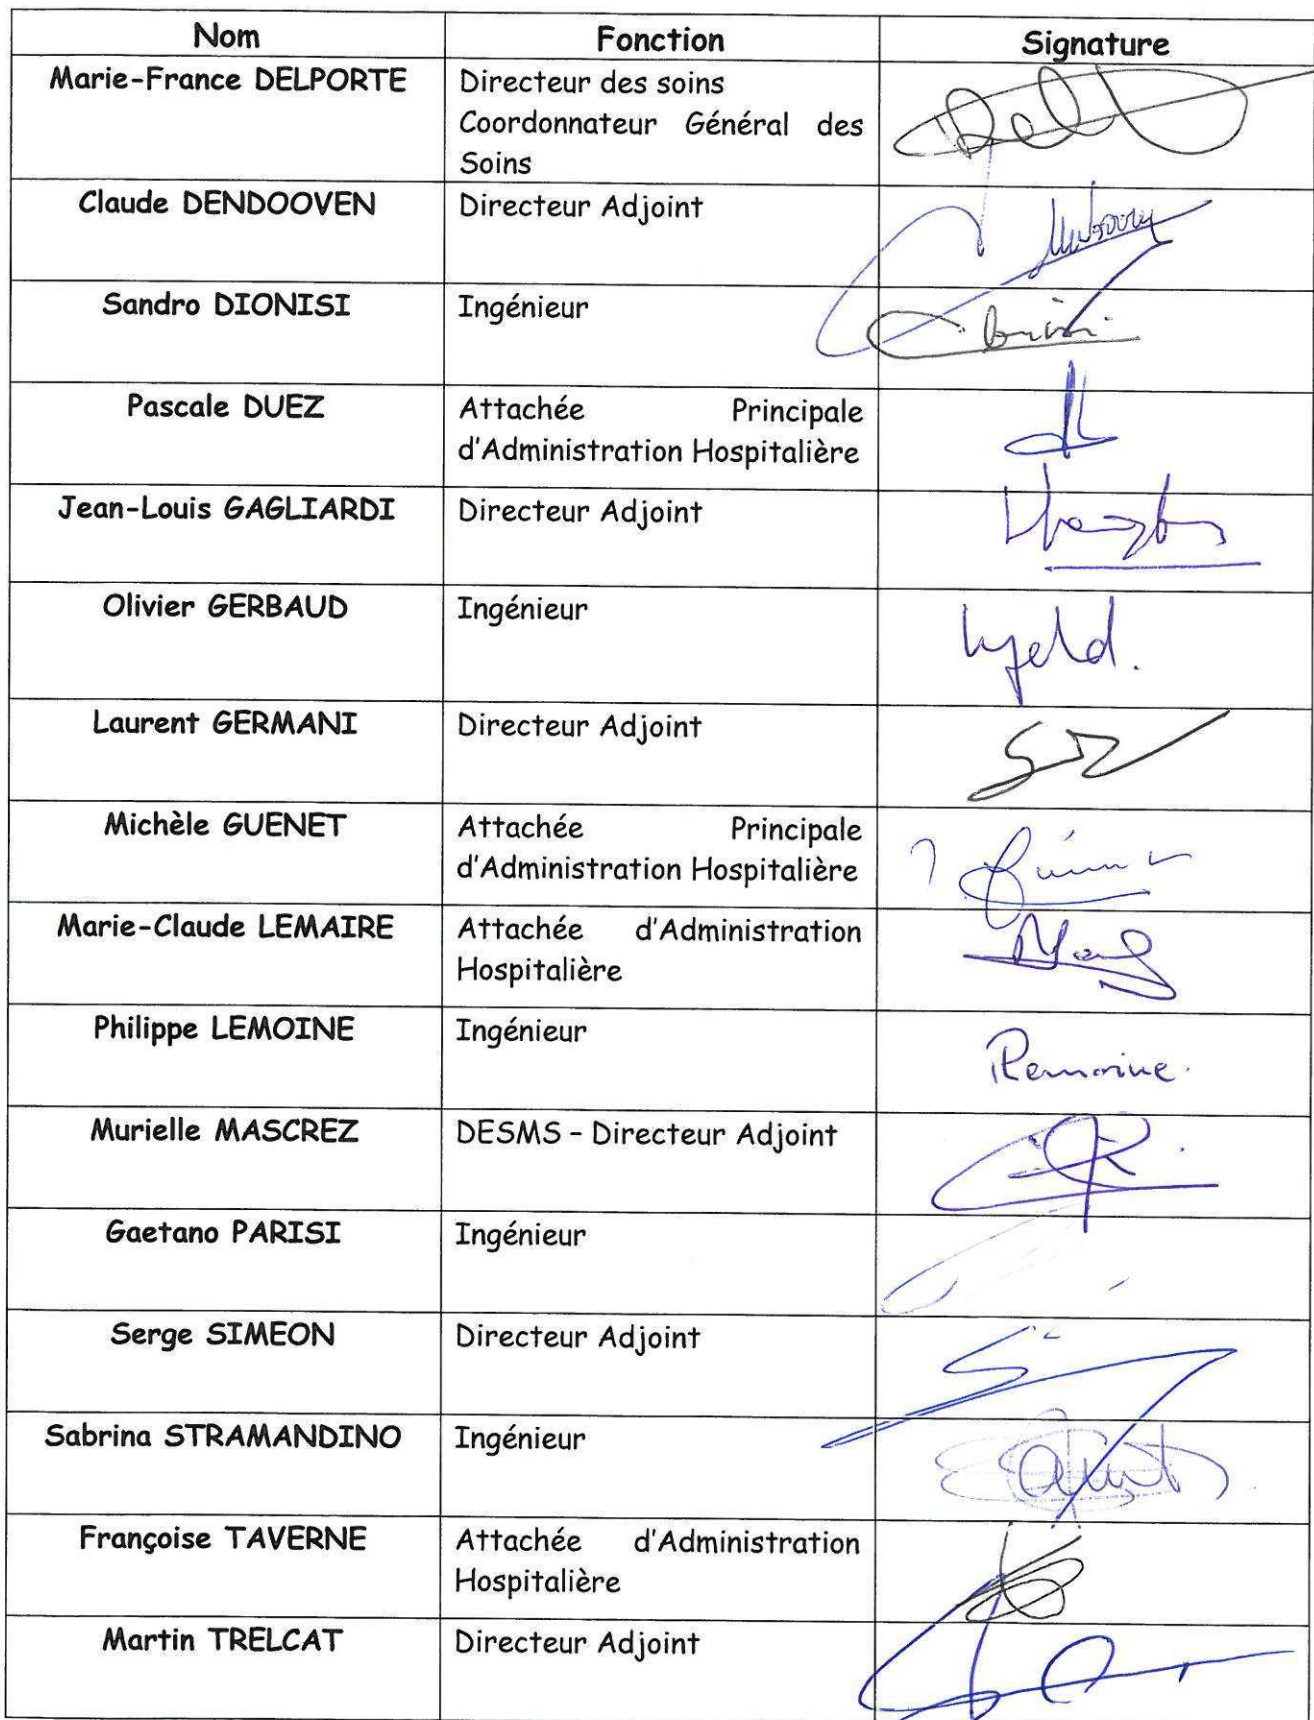 Nom Fonction Signature
Marie-France DELPORTE Directeur des soins
Coordonnateur Général des
Soins
Claude DENDOOVEN Directeur Adjoint
Sandro DIONISI Ingénieur
Pascale DUEZ Attachée Principale
d'Administration Hospitalière
Jean-Louis GAGLIARDI Directeur Adjoint
Olivier GERBAUD Ingénieur
Laurent GERMANI Directeur Adjoint
Michèle GUENET Attachée Principale
d'Administration Hospitalière
Marie-Claude LEMAIRE Attachée d'Administration
Hospitalière
Philippe LEMOINE Ingénieur
Murielle MASCREZ DESMS - Directeur Adjoint
Gaetano PARISI Ingénieur
Serge SIMEON Directeur Adjoint
Sabrina STRAMANDINO Ingénieur
Françoise TAVERNE Attachée d'Administration
Hospitalière
Martin TRELCAT Directeur Adjoint